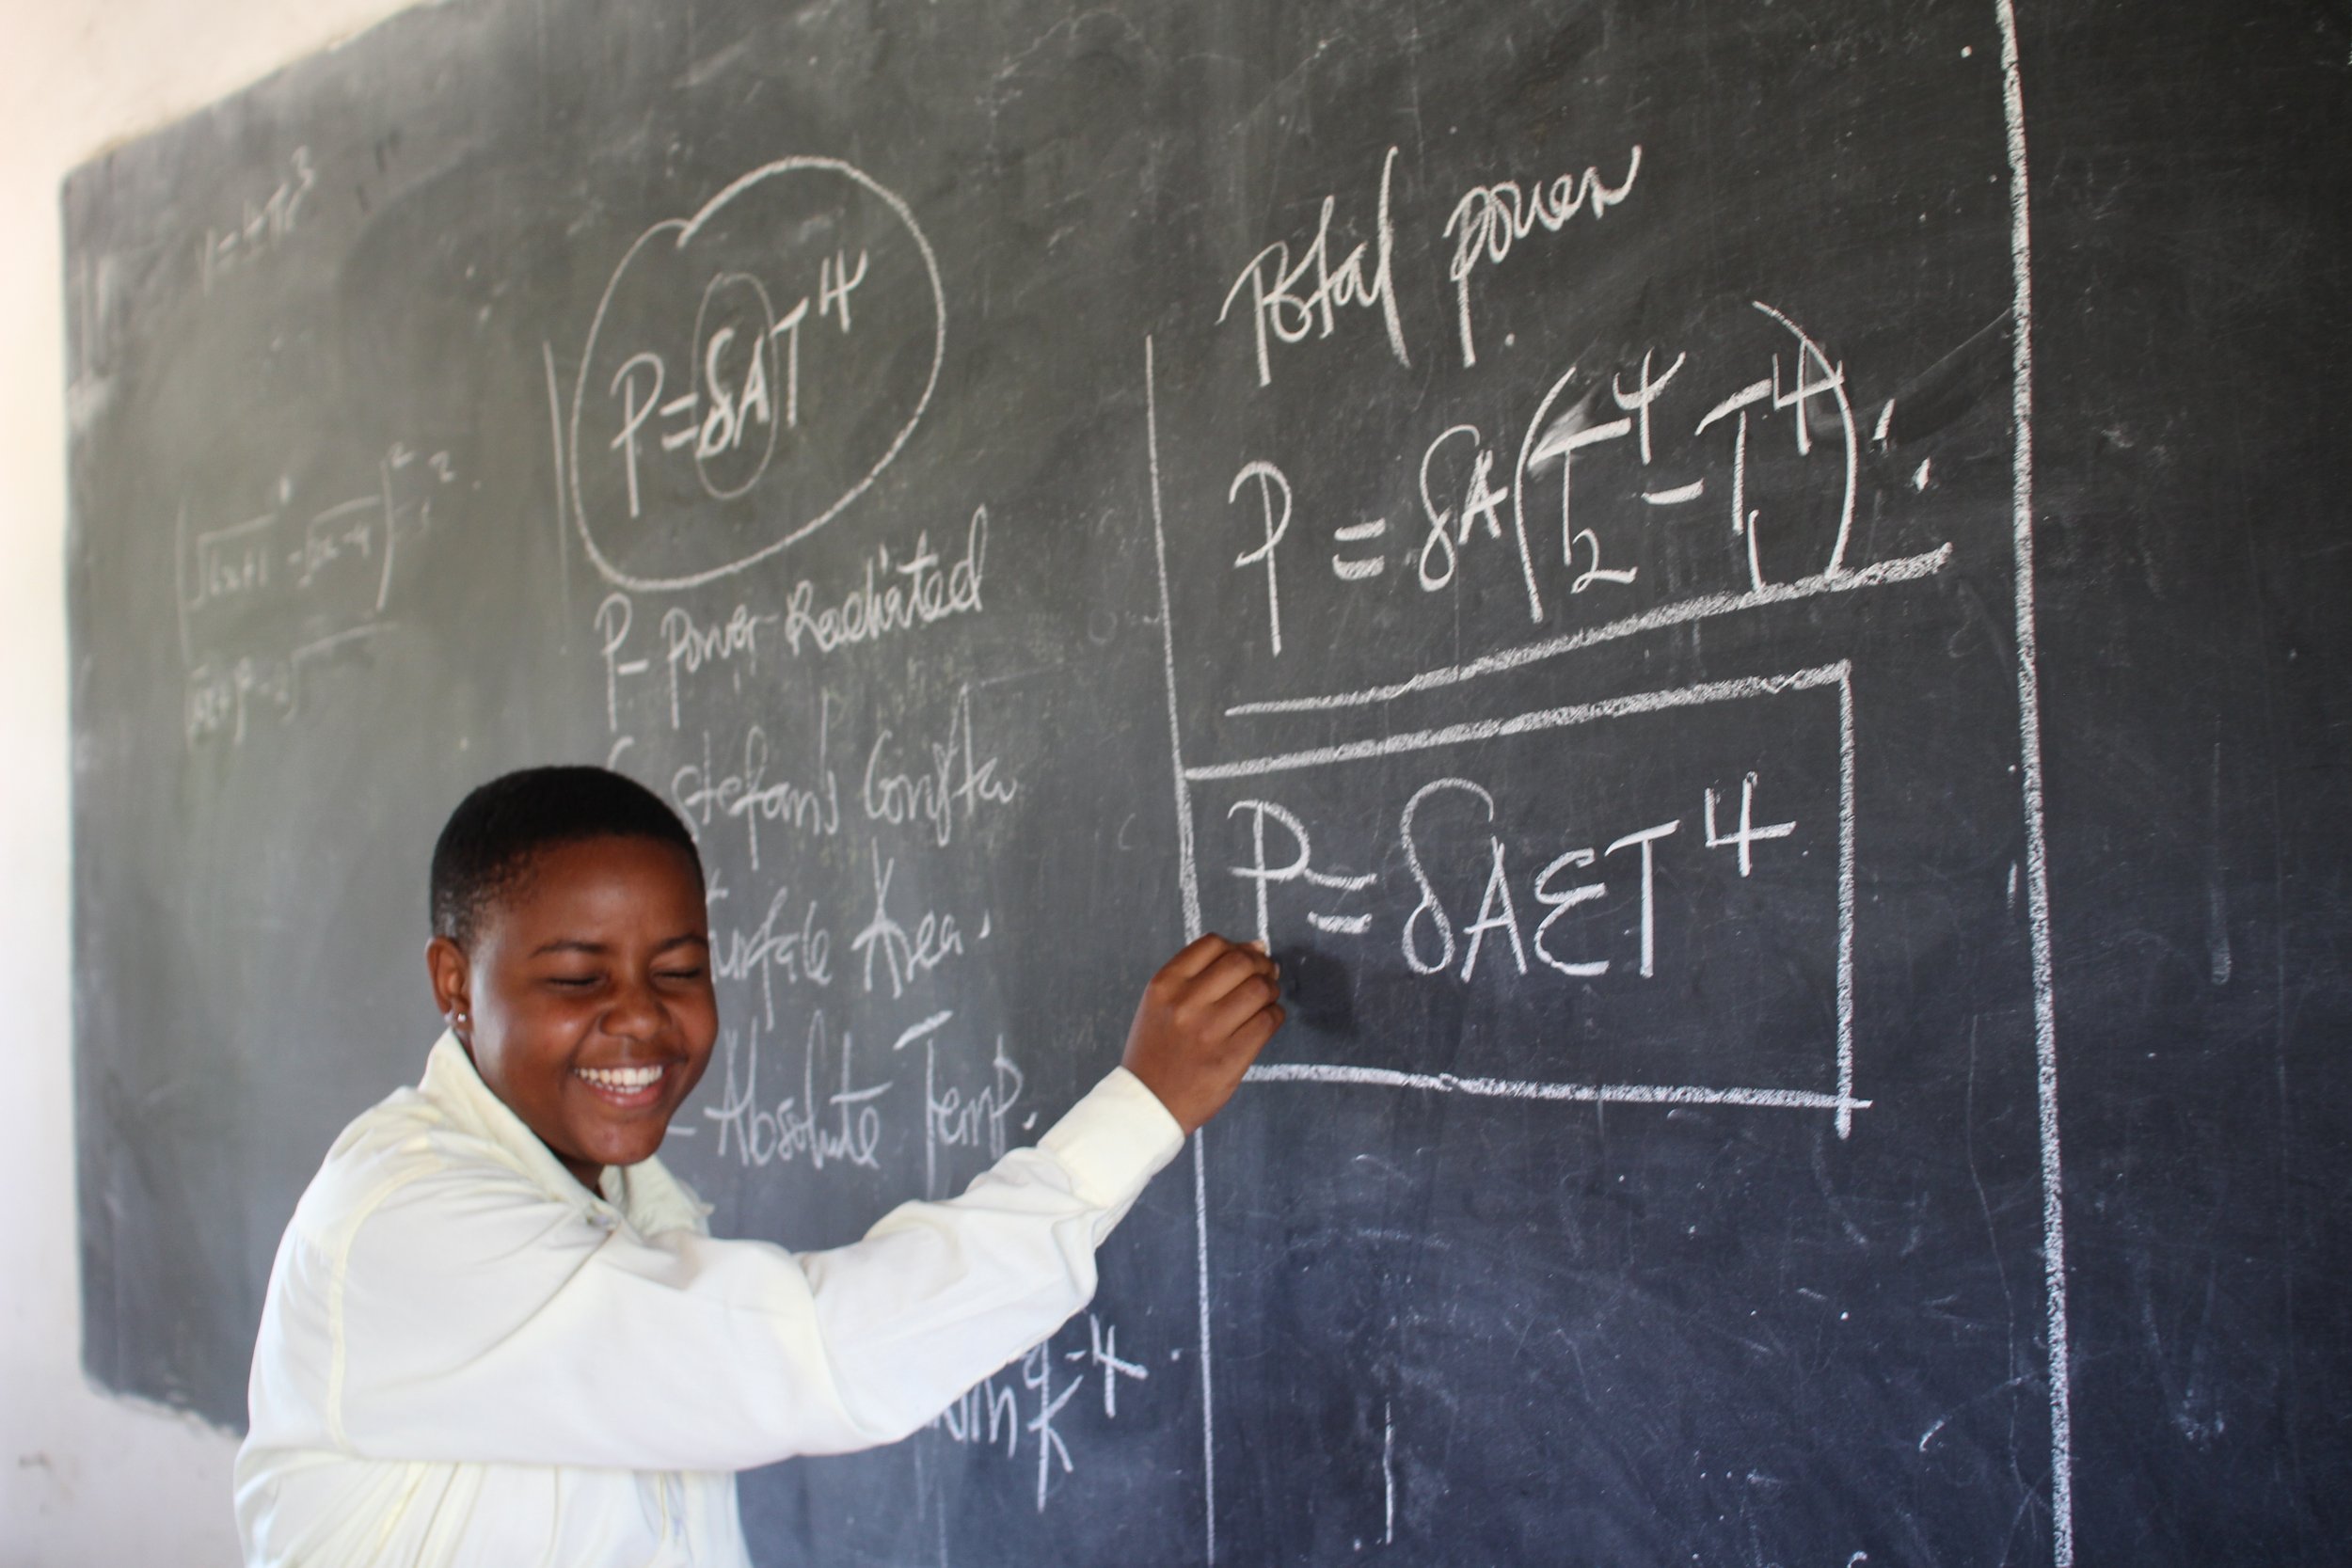 P=δAT⁴
P- Power Radiated
Stefan's Consta
Surface Area.
-Absolute Temp.
K⁻⁴.
Total power
P = δA(T₂⁴-T₁⁴)
P=δAET⁴